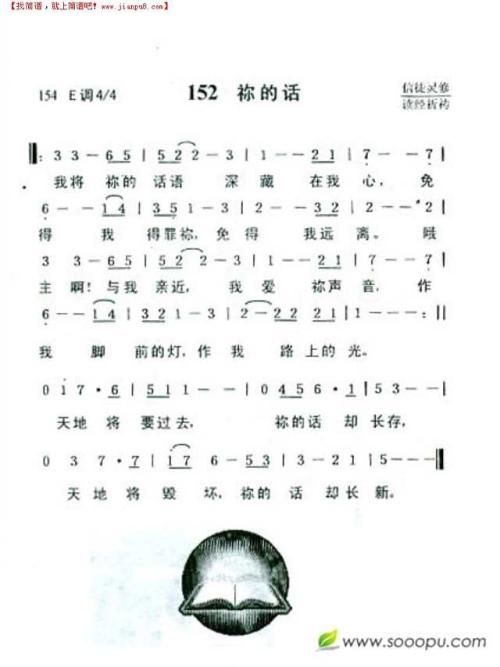 【找简谱，就上简谱吧! www.jianpu8.com】
154 E调4/4 152 祢的话 信徒灵修
读经祈祷
‖: 3 3 - 6 5 | 5 2 2 - 3 | 1 - - 2 1 | 7 - - 7 |
我将 祢的 话语 深藏 在我心，免
6 - - 1 4 | 3 5 1 - 3 | 2 - 3 1 2 | 2 - - 2 |
得 我 得罪祢，免得 我远离。哦
3 3 - 6 5 | 5 2 2 - 3 | 1 - - 2 1 | 7 - - 7 |
主啊！与我 亲近，我爱 祢声音，作
6 - - 1 4 | 3 2 1 - 3 | 2 - 1 7 2 | 1 - - :‖
我 脚 前的灯，作我 路上的光。
0 1 7 · 6 | 5 1 1 - - | 0 4 5 6 · 1 | 5 3 - - |
天地 将 要过去， 祢的话 却 长存，
0 3 7 · 7 | 1 7 6 - 5 3 | 3 - 2 1 | 5 - - ‖
天 地 将 毁 坏，祢的 话 却长 新。
www.sooopu.com